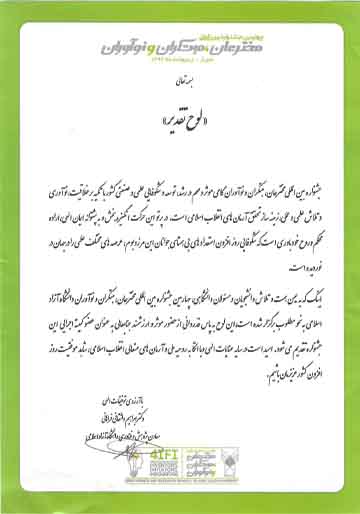 چهارمین جشنواره بین المللی
مخترعان، مبتکران و نوآوران
بسمه تعالی
«لوح تقدیر»
جشنواره بین المللی مخترعان، مبتکران و نوآوران گامی موثر و مهم در رشد، توسعه و شکوفایی علمی و صنعتی کشور با تکیه بر خلاقیت، نوآوری
و تلاش علمی و عملی، زمینه ساز تحقق آرمان های انقلاب اسلامی است. در پرتو این حرکت انگیزه بخش و به پشتوانه ایمان الهی، اراده
محکم و روح خودباوری است که شکوفایی روز افزون استعدادهای بی همتای جوانان این مرز و بوم، عرصه های مختلف علمی را در جهان در
نوردیده است.
اینک که به یمن همت و تلاش دانشجویان و مسئولان دانشگاهی، چهارمین جشنواره بین المللی مخترعان، مبتکران و نوآوران دانشگاه آزاد
اسلامی به نحو مطلوب برگزار شده است، این لوح به پاس قدردانی از حضور موثر و ارزشمند جنابعالی به عنوان عضو کمیته اجرایی این
جشنواره تقدیم می شود. امید است در سایه عنایات الهی و با اتکا به روحیه ملی و آرمان های متعالی انقلاب اسلامی، شاهد موفقیت روز
افزون کشور عزیزمان باشیم.
با آرزوی توفیقات الهی
دکتر
معاون پژوهش و فناوری دانشگاه آزاد اسلامی
4IFI
INVENTORS